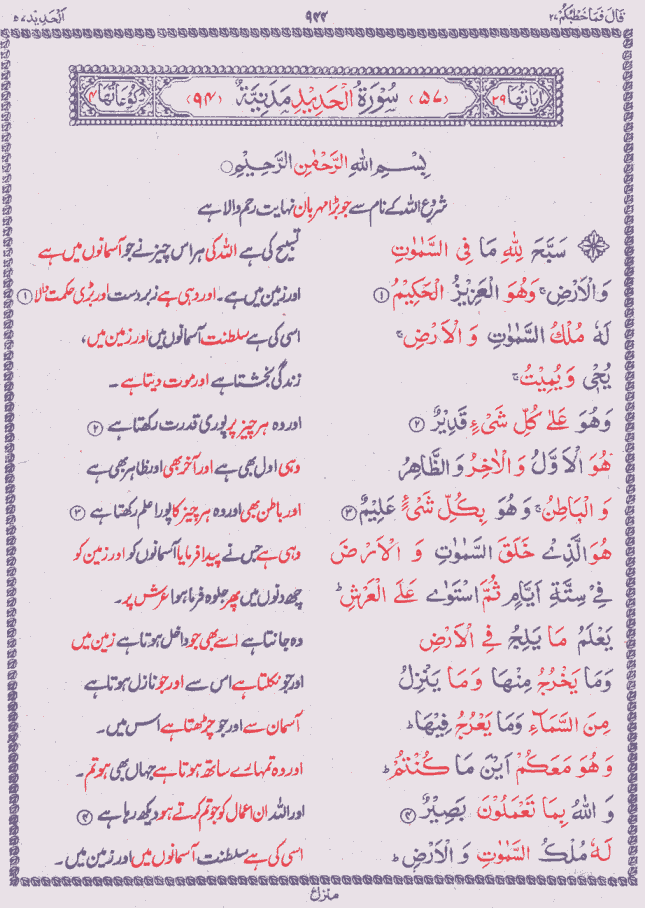 قَالَ فَمَا خَطْبُكُمْ ۲۷
اَلْحَدِيْد ۵۷
اٰيَاتُهَا ۲۹ (۵۷) سُوْرَةُ الْحَدِيْدِ مَدَنِيَّةٌ (۹۴) رُكُوْعَاتُهَا ۴
بِسْمِ اللهِ الرَّحْمٰنِ الرَّحِيْمِ
شروع اللہ کے نام سے جو بڑا مہربان نہایت رحم والا ہے
سَبَّحَ لِلّٰهِ مَا فِى السَّمٰوٰتِ تسبیح کی ہے اللہ کی ہر اس چیز نے جو آسمانوں میں ہے
وَالْاَرْضِ ۚ وَهُوَ الْعَزِيْزُ الْحَكِيْمُ ① اور زمین میں ہے۔ اور وہی ہے زبردست اور بڑی حکمت والا ①
لَهٗ مُلْكُ السَّمٰوٰتِ وَ الْاَرْضِ ۚ اسی کی ہے سلطنت آسمانوں میں اور زمین میں،
يُحْىٖ وَ يُمِيْتُ ۚ زندگی بخشتا ہے اور موت دیتا ہے ۔
وَهُوَ عَلٰى كُلِّ شَىْءٍ قَدِيْرٌ ② اور وہ ہر چیز پر پوری قدرت رکھتا ہے ②
هُوَ الْاَوَّلُ وَ الْاٰخِرُ وَ الظَّاهِرُ وہی اول بھی ہے اور آخر بھی اور ظاہر بھی ہے
وَ الْبَاطِنُ ۚ وَ هُوَ بِكُلِّ شَىْءٍ عَلِيْمٌ ③ اور باطن بھی اور وہ ہر چیز کا پورا علم رکھتا ہے ③
هُوَ الَّذِىْ خَلَقَ السَّمٰوٰتِ وَ الْاَرْضَ وہی ہے جس نے پیدا فرمایا آسمانوں کو اور زمین کو
فِىْ سِتَّةِ اَيَّامٍ ثُمَّ اسْتَوٰى عَلَى الْعَرْشِ ؕ چھ دنوں میں پھر جلوہ فرما ہوا عرش پر۔
يَعْلَمُ مَا يَلِجُ فِى الْاَرْضِ وہ جانتا ہے اسے بھی جو داخل ہوتا ہے زمین میں
وَمَا يَخْرُجُ مِنْهَا وَ مَا يَنْزِلُ اور جو نکلتا ہے اس سے اور جو نازل ہوتا ہے
مِنَ السَّمَآءِ وَمَا يَعْرُجُ فِيْهَا ؕ آسمان سے اور جو چڑھتا ہے اس میں۔
وَ هُوَ مَعَكُمْ اَيْنَ مَا كُنْتُمْ ؕ اور وہ تمہارے ساتھ ہوتا ہے جہاں بھی ہو تم۔
وَ اللهُ بِمَا تَعْمَلُوْنَ بَصِيْرٌ ④ اور اللہ ان اعمال کو جو تم کرتے ہو دیکھ رہا ہے ④
لَهٗ مُلْكُ السَّمٰوٰتِ وَ الْاَرْضِ ؕ اسی کی ہے سلطنت آسمانوں میں اور زمین میں۔
منزل